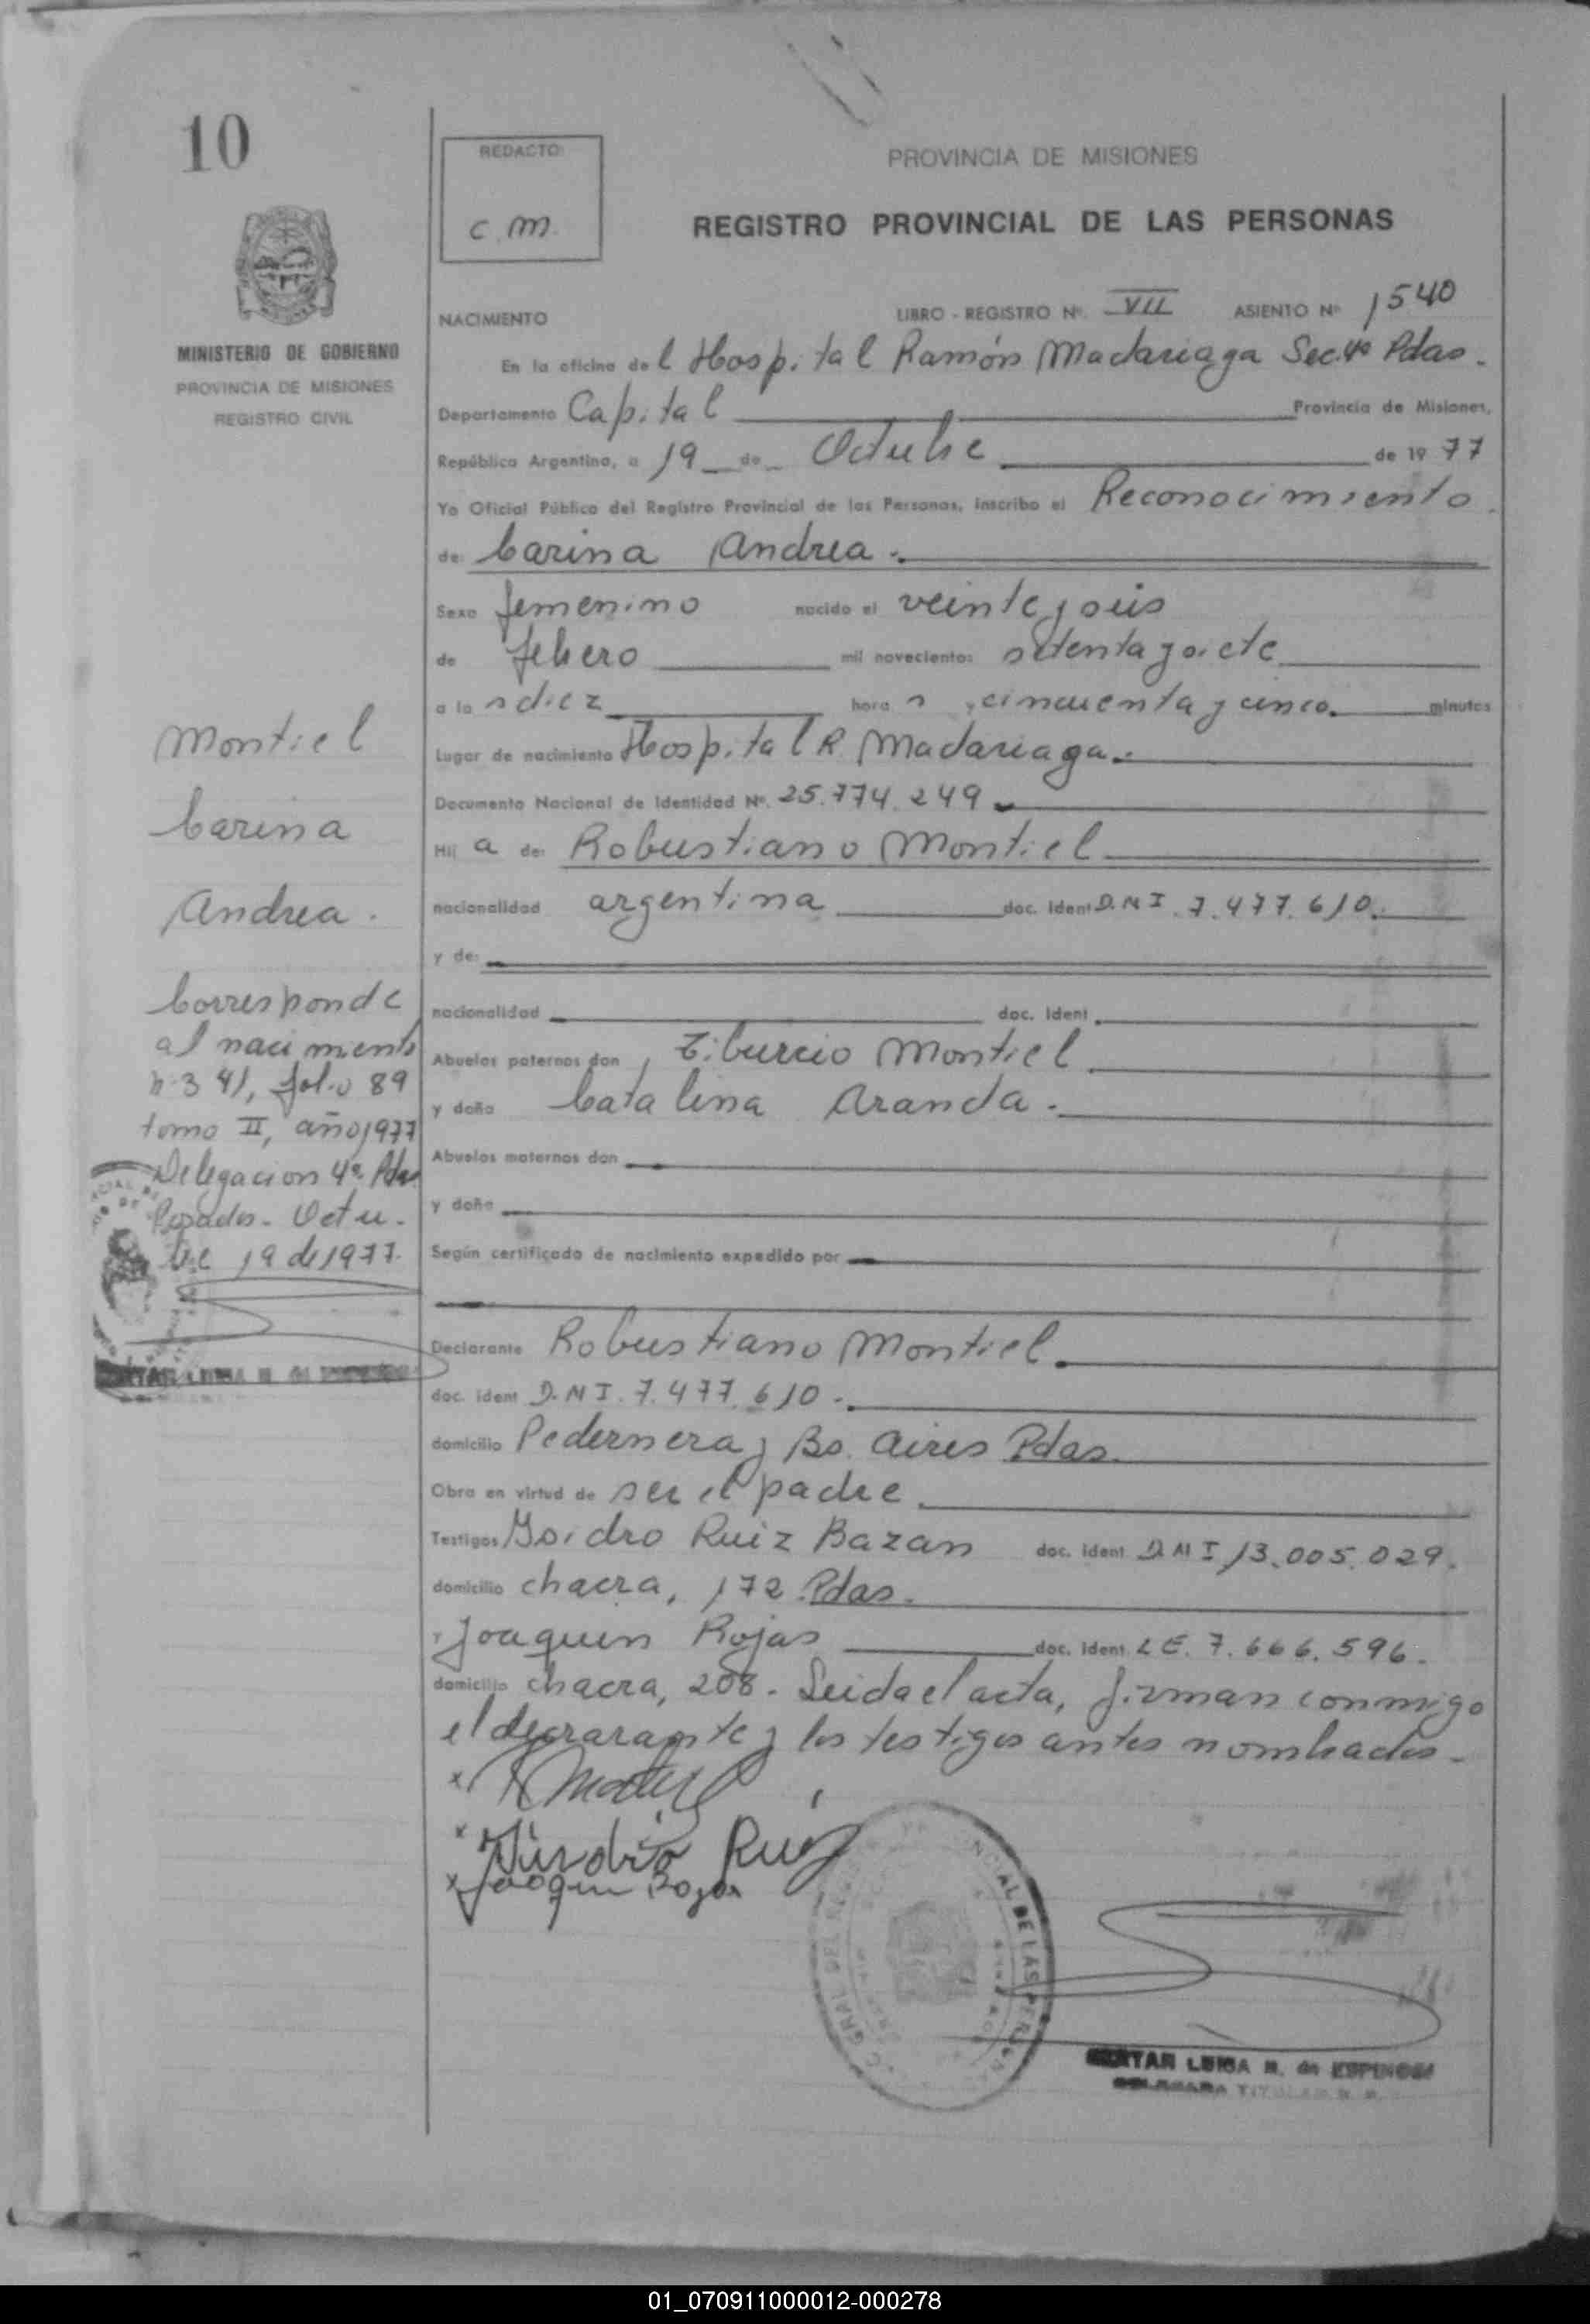 10
REDACTO:
C. M.
PROVINCIA DE MISIONES
REGISTRO PROVINCIAL DE LAS PERSONAS
MINISTERIO DE GOBIERNO
PROVINCIA DE MISIONES
REGISTRO CIVIL
NACIMIENTO LIBRO - REGISTRO Nº. VII ASIENTO Nº 1540
En la oficina del Hospital Ramón Madariaga Sec. 4ª Pdas.
Departamento Capital Provincia de Misiones,
República Argentina, a 19 de Octubre de 1977
Yo Oficial Público del Registro Provincial de las Personas, inscribo el Reconocimiento
de: Carina Andrea.
Sexo femenino nacido el veinteyseis
de febrero mil novecientos setentaysiete
a las diez horas y cincuenta y cinco. minutos
Lugar de nacimiento Hospital R Madariaga.
Documento Nacional de Identidad Nº. 25.774.249
Hija de: Robustiano Montiel
nacionalidad argentina doc. Ident D.N.I. 7.477.610.
y de:
nacionalidad doc. Ident
Abuelos paternos don Tiburcio Montiel
y doña Catalina Aranda.
Abuelos maternos don
y doña
Según certificado de nacimiento expedido por
Declarante Robustiano Montiel.
doc. ident D.N.I. 7.477.610.
domicilio Pedernera y Bs. Aires Pdas.
Obra en virtud de ser el padre
Testigos Ysidro Ruiz Bazan doc. ident D.N.I 13.005.029.
domicilio chacra, 172 Pdas.
y Joaquin Rojas doc. ident L E. 7.666.596.
domicilio chacra, 208. Leida el acta, firman conmigo
el decrarante y los testigos antes nombrados.
Montiel
Carina
Andrea.
Corresponde
al nacimiento
nº 341, folio 89
tomo II, año 1977
Delegacion 4ª. Pdas
Posadas. Octu-
bre 19 de 1977.
Ruiz
Joaquin Rojas
LUISA N. de ESPINOSA
01_070911000012-000278